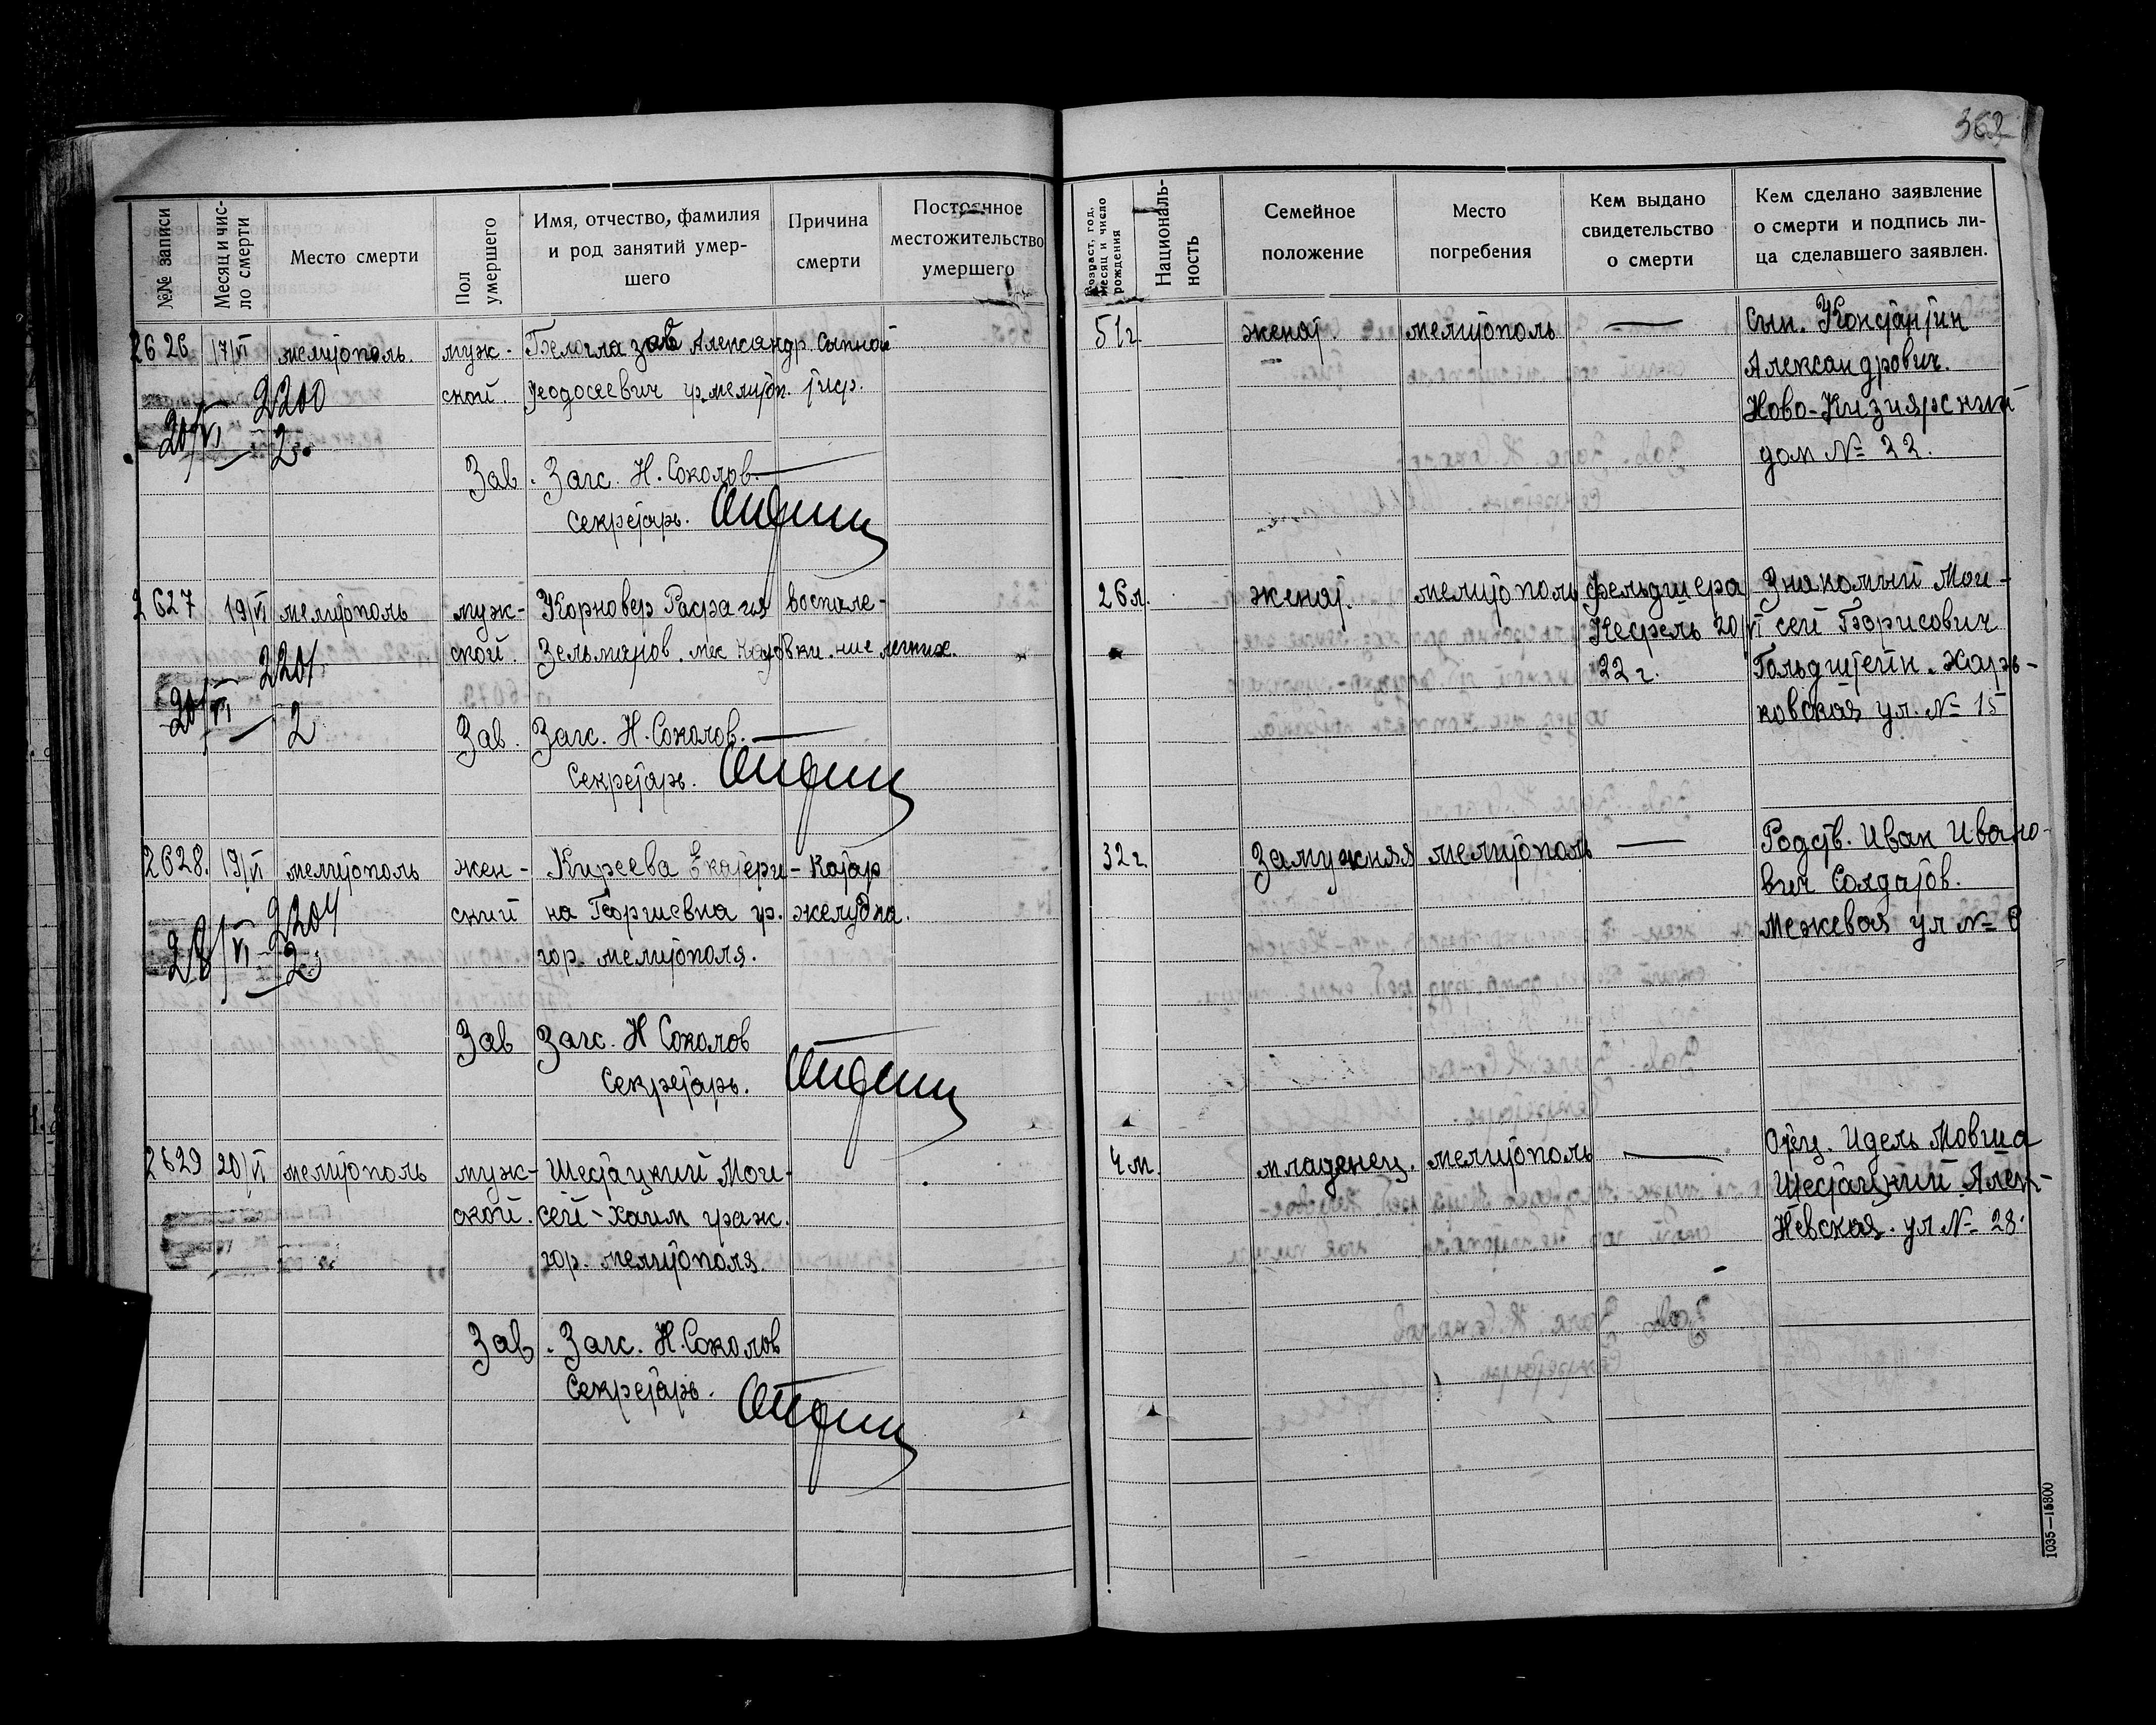 362
№№ записи
Месяц и чис-
ло смерти
Место смерти
Пол
умершего
Имя, отчество, фамилия
и род занятий умер-
шего
Причина
смерти
Постоянное
местожительство
умершего
Возраст, год,
месяц и число
рождения
Националь-
ность
Семейное
положение
Место
погребения
Кем выдано
свидетельство
о смерти
Кем сделано заявление
о смерти и подпись ли-
ца сделавшего заявлен.
2626 17/VI мелитополь. муж- Белоглазов Александр Сыпной 51 г. женат мелитополь — Сын. Константин
ской. Феодосеевич гр. мелитоп. тиф. Александрович.
2200 Ново-Кизиярский
20/VI — 2. дом № 22.
Зав. Загс. Н. Соколов.
Секретарь.
2627 19/VI мелитополь муж- Корновер восполе- 26 л. женат. мелитополь фельдшера Знакомый Мои-
ской. Зельманов. мес Каховки. ние легких. 20/VI сей Борисович
2201 22 г. Гольдштейн. Харь-
20/VI — 2 ковская ул. № 15
Зав. Загс. Н. Соколов.
Секретарь.
2628. 19/VI мелитополь жен- Киреева Екатери- Катар 32 г. Замужняя мелитополь — Родств. Иван Ивано-
ский на Георгиевна гр. желудка. вич Солдатов.
2204 гор. мелитополя. Межевая ул №
28/VI — 2
Зав Загс. Н Соколов
Секретарь.
2629 20/VI мелитополь муж- Шестацкий Мои- 4 м. младенец. мелитополь — Отец. Идель Мовша
ской. сей-Хаим граж. Шестацкий Алек-
гор. мелитополя. Невская. ул № 28.
Зав. Загс. Н. Соколов
Секретарь.
1035—15800